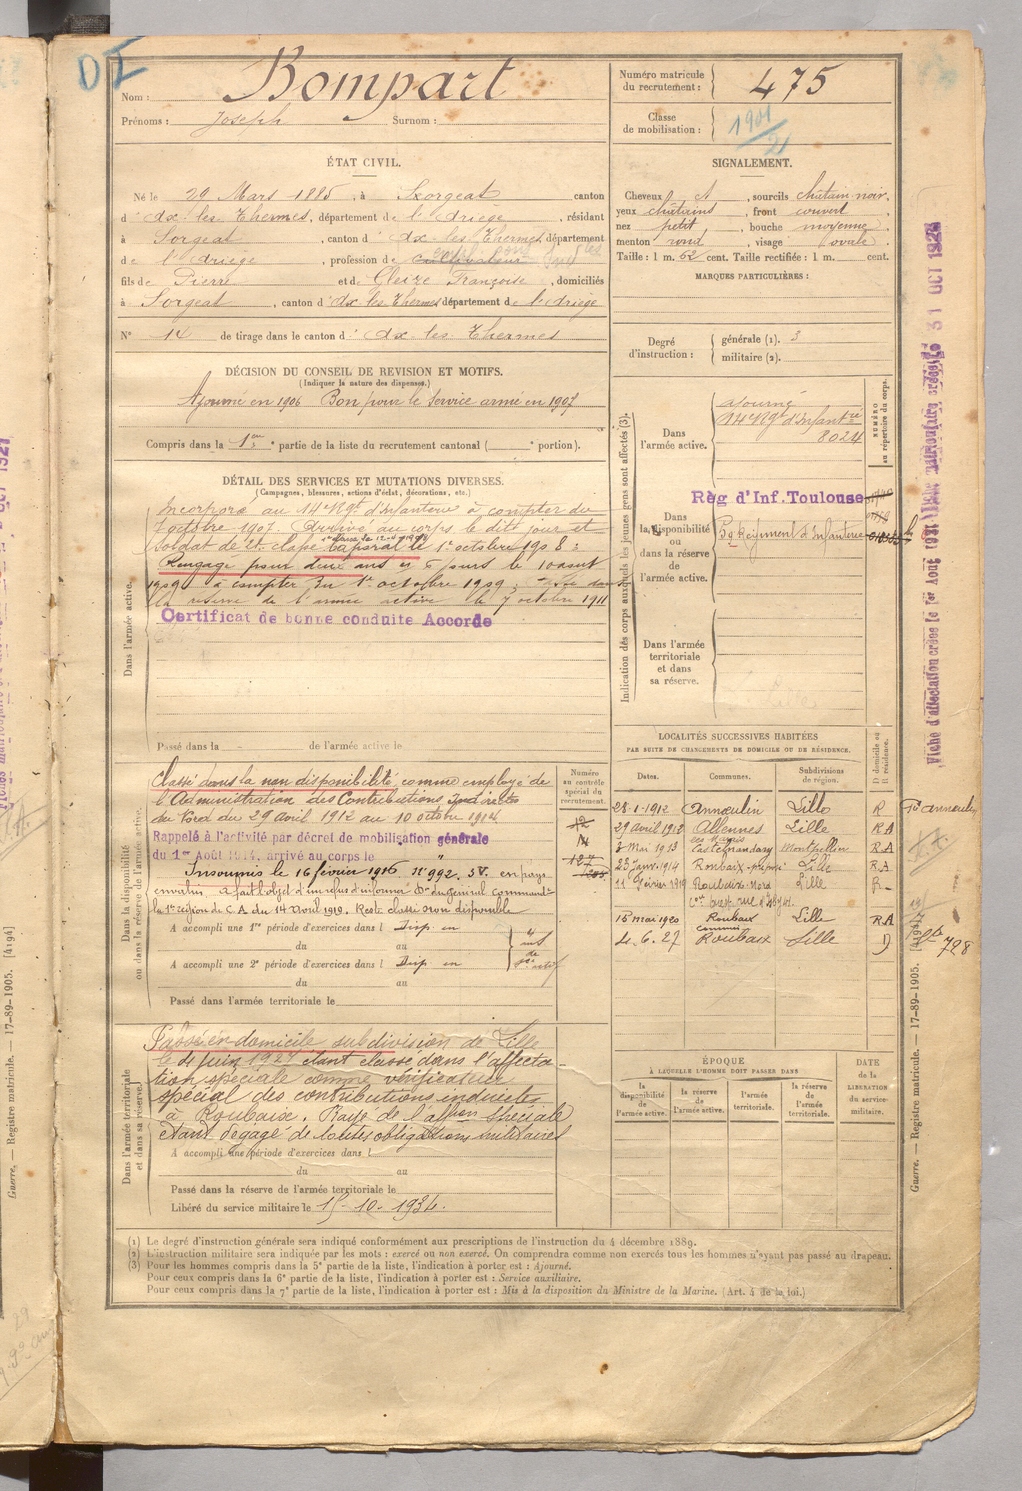 DI
Nom : Bompart
Prénoms : Joseph Surnom :
Numéro matricule du recrutement : 475
Classe de mobilisation : 1901/21
ÉTAT CIVIL.
Né le 29 Mars 1885, à Sorgeat canton
d' Ax-les-Thermes, département de l'Ariège, résidant
à Sorgeat, canton d' Ax les Thermes, département
de l'Ariège, profession de cultivateur
fils de Pierre et de Cleize Françoise, domiciliés
à Sorgeat, canton d' Ax les Thermes département de l'Ariège
N° 14 de tirage dans le canton d' Ax les Thermes
SIGNALEMENT.
Cheveux , sourcils châtain noir,
yeux châtains, front couvert
nez petit, bouche moyenne,
menton rond, visage ovale.
Taille : 1 m. 62 cent. Taille rectifiée : 1 m. cent.
MARQUES PARTICULIÈRES :
Degré d'instruction : générale (1). 3
militaire (2).
DÉCISION DU CONSEIL DE REVISION ET MOTIFS.
(Indiquer la nature des dispenses.)
Ajourné en 1906 Bon pour le Service armé en 1907
Compris dans la 1ère partie de la liste du recrutement cantonal ( e portion).
DÉTAIL DES SERVICES ET MUTATIONS DIVERSES.
(Campagnes, blessures, actions d'éclat, décorations, etc.)
Dans l'armée active.
Incorporé au 14e Rgt d'Infanterie à compter du
7 octobre 1907. Arrivé au corps le dit jour et
soldat de 2e classe Caporal le 1er octobre 1908 :
Rengagé pour deux ans et 6 jours le 10 août
1909 à compter du 1er octobre 1909 ; Passé dans
la réserve de l'armée active le 7 octobre 1911
Certificat de bonne conduite Accordé
Passé dans la de l'armée active le
Indication des corps auxquels les jeunes gens sont affectés (3).
NUMÉRO au répertoire du corps.
Dans l'armée active.
ajourné
14e Rgt d'Infantrie
8024
Règ d'Inf. Toulouse
Dans la disponibilité ou dans la réserve de l'armée active.
Régiment d'Infanterie
Dans l'armée territoriale et dans sa réserve.
Fiche d'affectation créée le 1er Août 1921
31 OCT 1928
LOCALITÉS SUCCESSIVES HABITÉES
PAR SUITE DE CHANGEMENTS DE DOMICILE OU DE RÉSIDENCE.
Dates. Communes. Subdivisions de région. D domicile ou R résidence.
28-1-1912 Annoeulin Lille R
29 avril 1912 Allennes les Marais Lille RA
3 Mai 1913 Castelnaudary Montpellier RA
23 Janv. 1914 Roubaix Lille RA
11 Février 1919 Roubaix Nord Lille R
15 mai 1920 Roubaix Lille RA
4.6.27 Roubaix Lille D
728
Dans la disponibilité ou dans la réserve de l'armée active.
Numéro au contrôle spécial du recrutement.
Classé dans la non disponibilité comme employé de
l'Administration des Contributions Indirectes
du Nord du 29 avril 1912 au 10 octobre 1914
Rappelé à l'activité par décret de mobilisation générale
du 1er Août 1914, arrivé au corps le
Insoumis le 16 février 1916 n° 992. S.V. en pays
envahi a fait l'objet d'un refus d'informer Dn du général Commandt
la 1ère région de C.A. du 14 avril 1919. Reste classé non disponible
A accompli une 1re période d'exercices dans l Disp. en
du au
A accompli une 2e période d'exercices dans l Disp en
du au
Passé dans l'armée territoriale le
Dans l'armée territoriale et dans sa réserve.
Passé en domicile subdivision de Lille
le 4 juin 1927 étant classé dans l'affecta-
tion spéciale comme vérificateur
spécial des contributions indirectes
à Roubaix. Rayé de l'affion spéciale
étant dégagé de toutes obligations militaires
A accompli une période d'exercices dans l
du au
Passé dans la réserve de l'armée territoriale le
Libéré du service militaire le 15-10-1934.
ÉPOQUE
À LAQUELLE L'HOMME DOIT PASSER DANS
la disponibilité de l'armée active. la réserve de l'armée active. l'armée territoriale. la réserve de l'armée territoriale.
DATE de la LIBÉRATION du service militaire.
(1) Le degré d'instruction générale sera indiqué conformément aux prescriptions de l'instruction du 4 décembre 1889.
(2) L'instruction militaire sera indiquée par les mots : exercé ou non exercé. On comprendra comme non exercés tous les hommes n'ayant pas passé au drapeau.
(3) Pour les hommes compris dans la 5e partie de la liste, l'indication à porter est : Ajourné.
Pour ceux compris dans la 6e partie de la liste, l'indication à porter est : Service auxiliaire.
Pour ceux compris dans la 7e partie de la liste, l'indication à porter est : Mis à la disposition du Ministre de la Marine. (Art. 4 de la loi.)
Guerre. — Registre matricule. — 17-89-1905. [4194]
Guerre. — Registre matricule. — 17-89-1905. [4194]